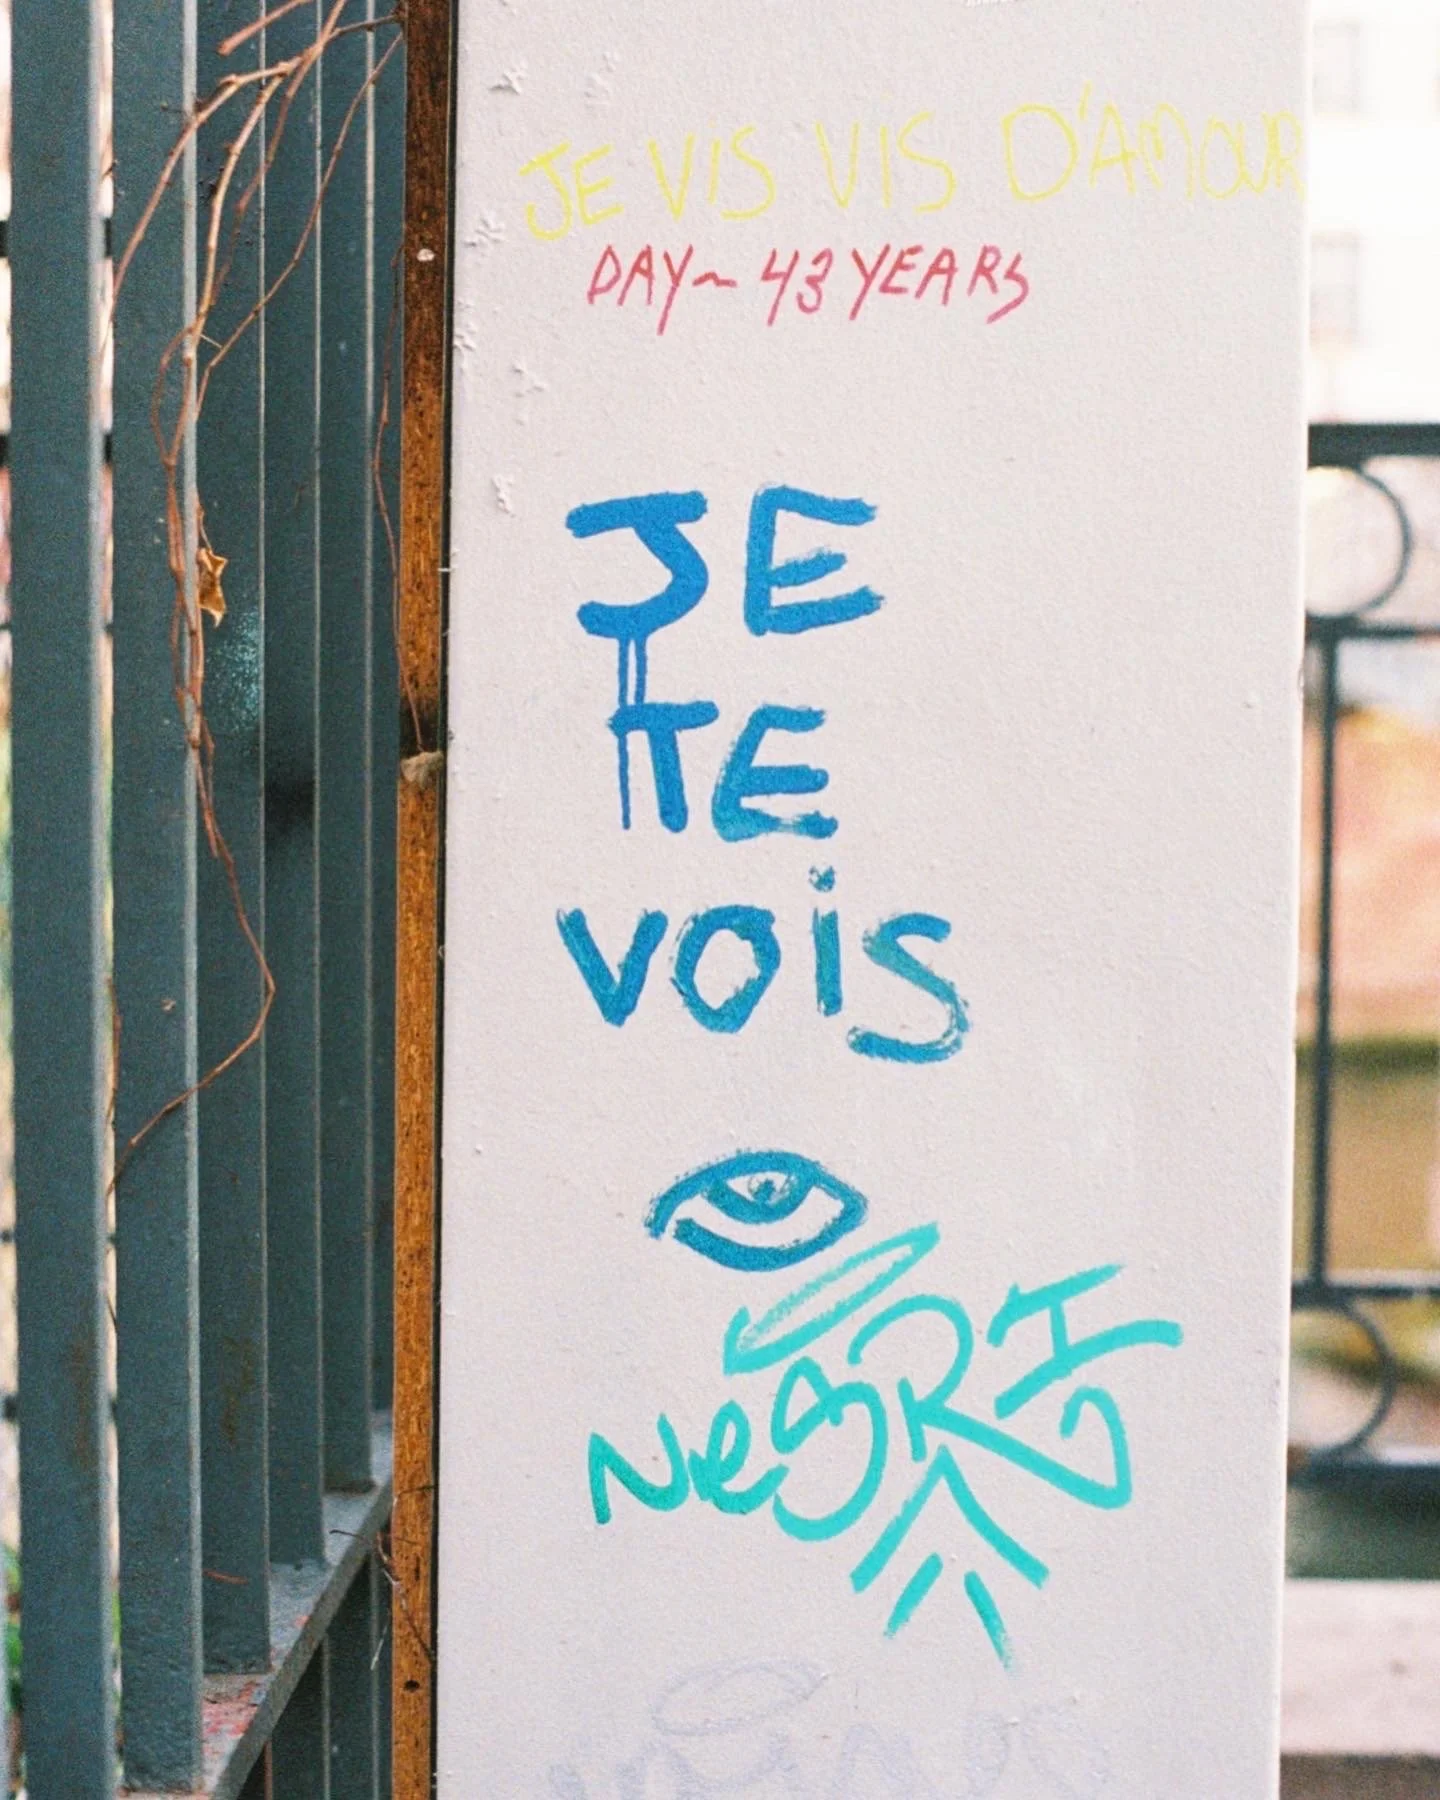 JE VIS VIS D'AMOUR
DAY~ 43 YEARS
JE
TE
VOIS
NEGRI